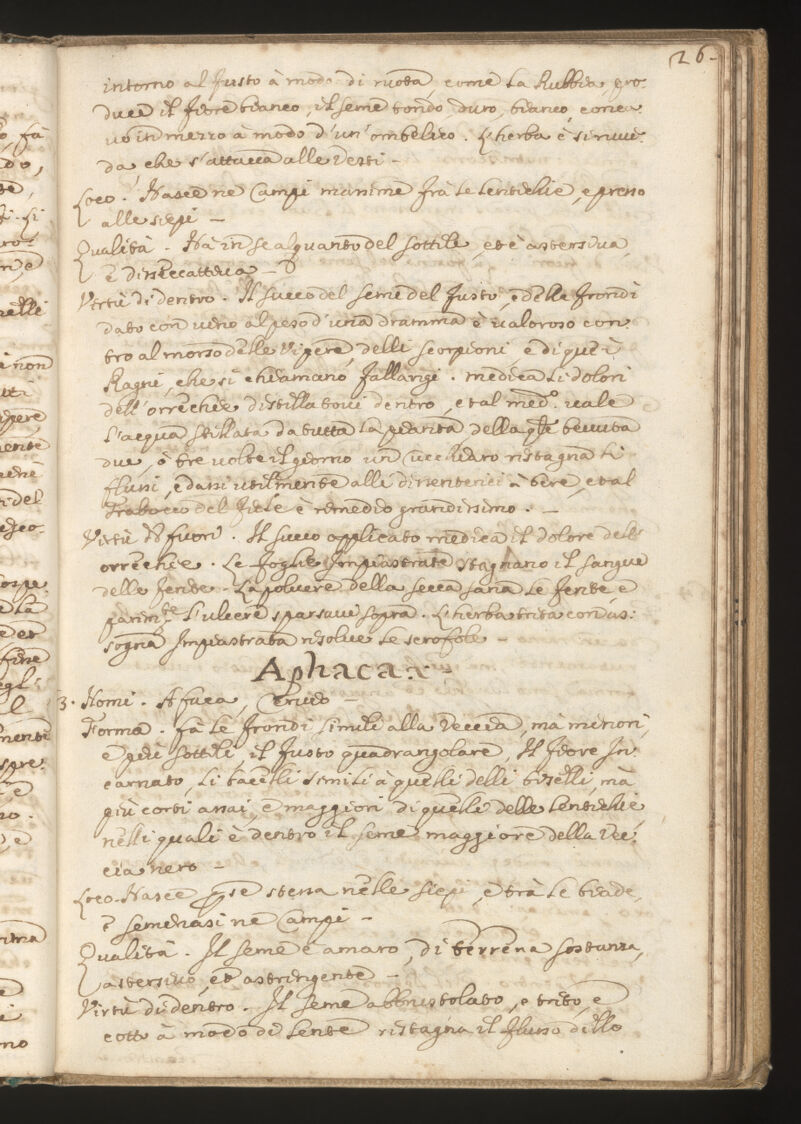 26.
intorno al fusto à modo di ruota, come la Rubbia. pro:
duce il fiore bianco, il seme tondo, duro, bianco, conca:
uo in mezzo à modo d'un'ombelico. L'herba è si ruui:
da, che s'attacca alle vesti -
Loco. Nasce ne Campi massime frà le lentichie, e presso
alle siepi -
Qualità. Hà in se alquanto del sottile, et è astersiua,
e disseccattiua -
Virtù di dentro. Il succo del seme del fusto, e delle frondi
dato con uino al peso d'una dramma è ualoroso con:
tro al morso delle Vipere, delli scorpioni, e di quei
Ragni, che si chiamano fallangi. medica li dolori
dell'orrechie distillatoui dentro, et al med.o uale
l'acqua stillata da tutta la pianta, della qle beuuta
due, ò tre uolte il giorno un cucchiaro ristagna li
flussi, e dassi utilmente alli dissenterici à bere, et al
trabocco del fiele è rimedio grandissimo. -
Virtù di fuori. Il succo applicato medica il dolore dell'
orrechie. Le foglie Impiastrate stagnano il sangue
delle ferite. La poluere della secca sana le ferite, e
parim.te l'ulcere sparsaui sopra. L'herba trita con as:
sogna Impiastrata risolue le scrofole -
Aphaca. -
3. Nomi. Afaca,
Forma. Fà le frondi simili alla Veccia, mà minori,
e più sottili, il fusto quadrangolare, Il fiore In:
carnato, li bacelli simili à quelli delli biselli, mà
più corti assai, e maggiori di quelli delle lentichie,
nelli quali è dentro il seme maggiore della Ve:
cia nero -
Loco. Nasce p se stessa nelle siepi, e trà le biade,
e seminasi ne Campi -
Qualità. Il seme è amaro, di terrena sostanza,
astersiuo, et astringente -
Virtù di dentro. Il seme abbrustolato, e trito, e
cotto à modo di lente ristagna il flusso dello